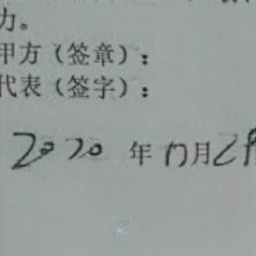 力。
甲方（签章）：
代表（签字）：
2020 年 17月2日